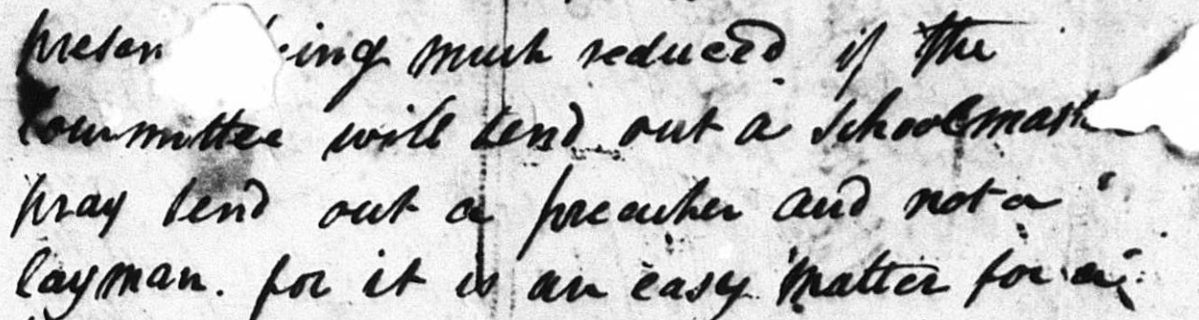 presen being much reduced if the
Committee will send out a schoolmast
pray send out a preacher and not a
layman. for it is an easy matter for a